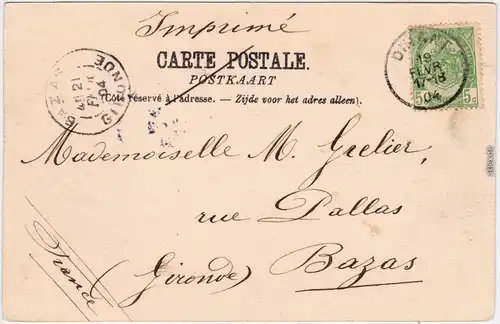 Imprimé
CARTE POSTALE.
POSTKAART
(Côté réservé à l'adresse. — Zijde voor het adres alleen).
DINANT
19
FEVR
17-18
04
5c 5c
BAZAS
4E 21
FEVR
04
GIRONDE
Mademoiselle M. Grelier,
rue Pallas
(Gironde) Bazas
France